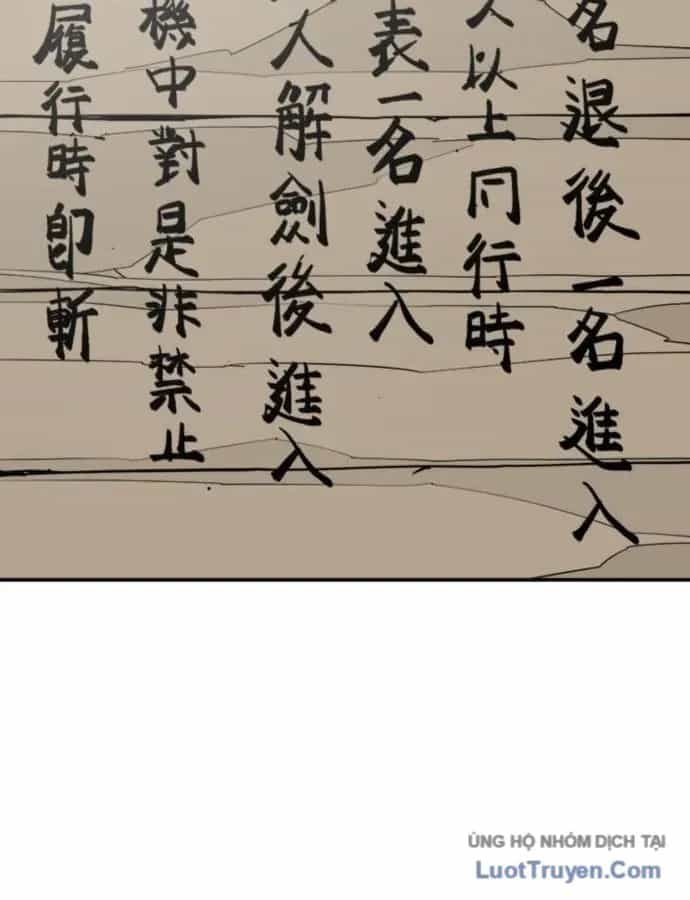 名退後一名進入
人以上同行時
表一名進入
人解劍後進入
機中對是非禁止
履行時即斬
ỦNG HỘ NHÓM DỊCH TẠI
LuotTruyen.Com